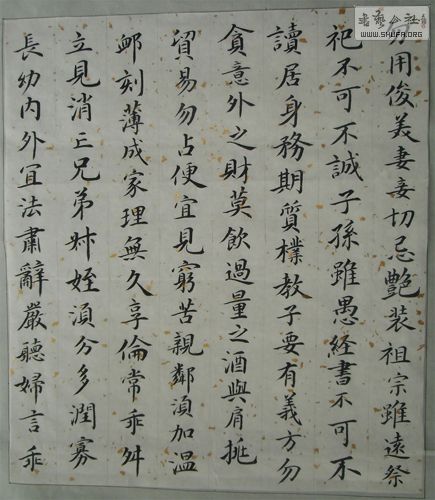 勿用俊美妻妾切忌艷装祖宗雖遠祭
祀不可不誠子孫雖愚経書不可不
讀居身務期質樸教子要有義方勿
貪意外之財莫飲過量之酒與肩挑
貿易勿占便宜見窮苦親鄰湏加温
邺刻薄成家理無久享倫常乖舛
立見消亡兄弟姊姪湏分多潤寡
長幼内外宜法肅辭嚴聽婦言乖
書藝公社
WWW.SHUFA.ORG